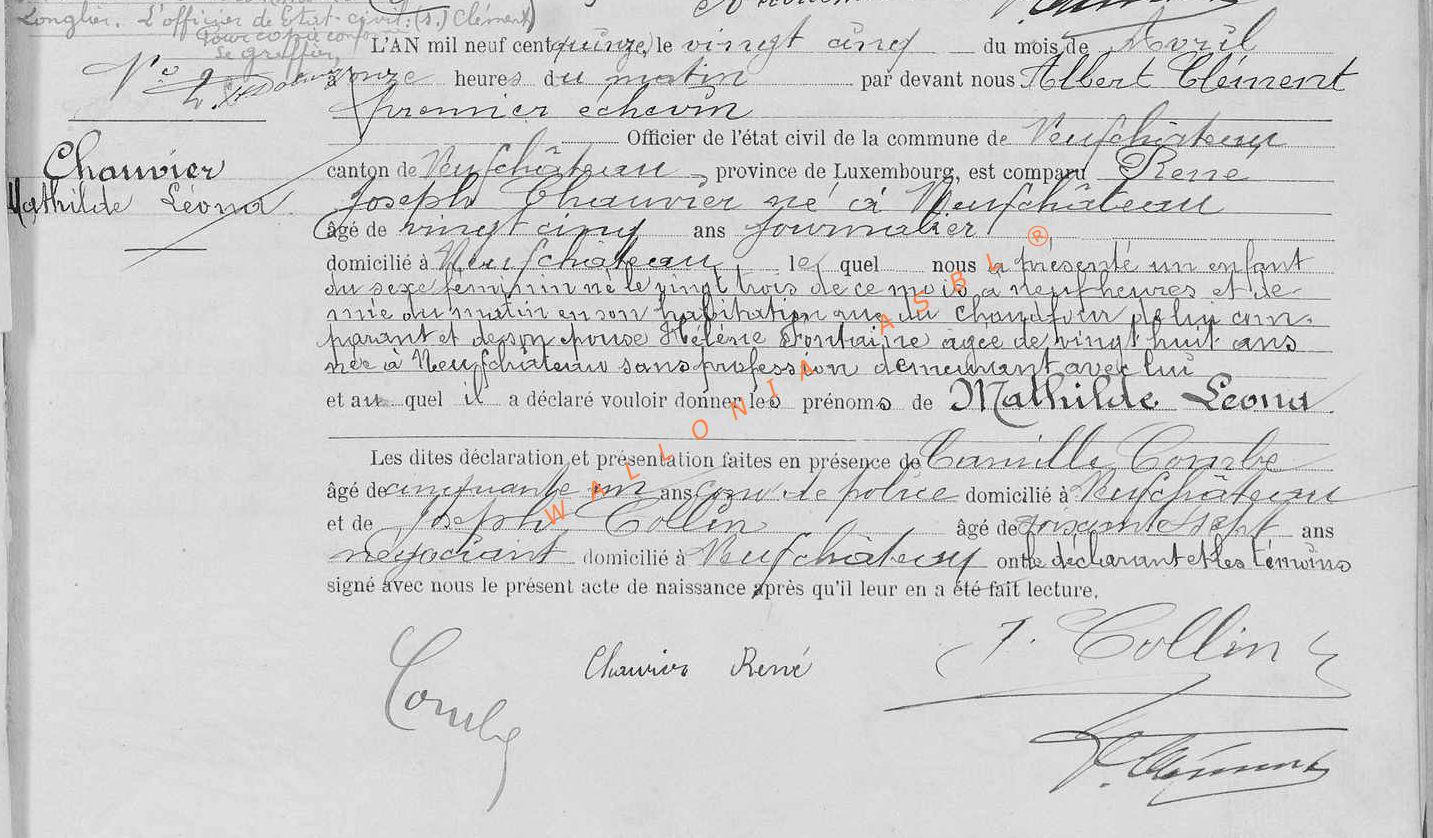 Longlier. L'officier de Etat-civil: (s.) Clément)
Pour copie conforme
Le greffier,
L'AN mil neuf cent quinze, le vingt cinq du mois de Avril
N° 2
à onze heures du matin par devant nous Albert Clément
premier echevin
Officier de l'état civil de la commune de Neufchâteau
Chauvier
Mathilde Léona
canton de Neufchâteau, province de Luxembourg, est comparu René
Joseph Chauvier né à Neufchâteau
âgé de vingt cinq ans journalier
domicilié à Neufchâteau lequel nous a présenté un enfant
du sexe feminin né le vingt trois de ce mois à neuf heures et de-
mie du matin en son habitation rue du Chaudfour de lui com-
parant et de son epouse Hélène Fontaine agée de vingt huit ans
née à Neufchâteau sans profession demeurant avec lui
et au quel il a déclaré vouloir donner les prénoms de Mathilde Léona.
Les dites déclaration et présentation faites en présence de Camille Combe
âgé de cinquante un ans de police domicilié à Neufchâteau
et de Joseph Collin âgé de soixante sept ans
négociant domicilié à Neufchâteau ont le déclarant et les témoins
signé avec nous le présent acte de naissance après qu'il leur en a été fait lecture.
J. Collin
Chauvier René
Combe
Clément
WALLONIA ASBL ®